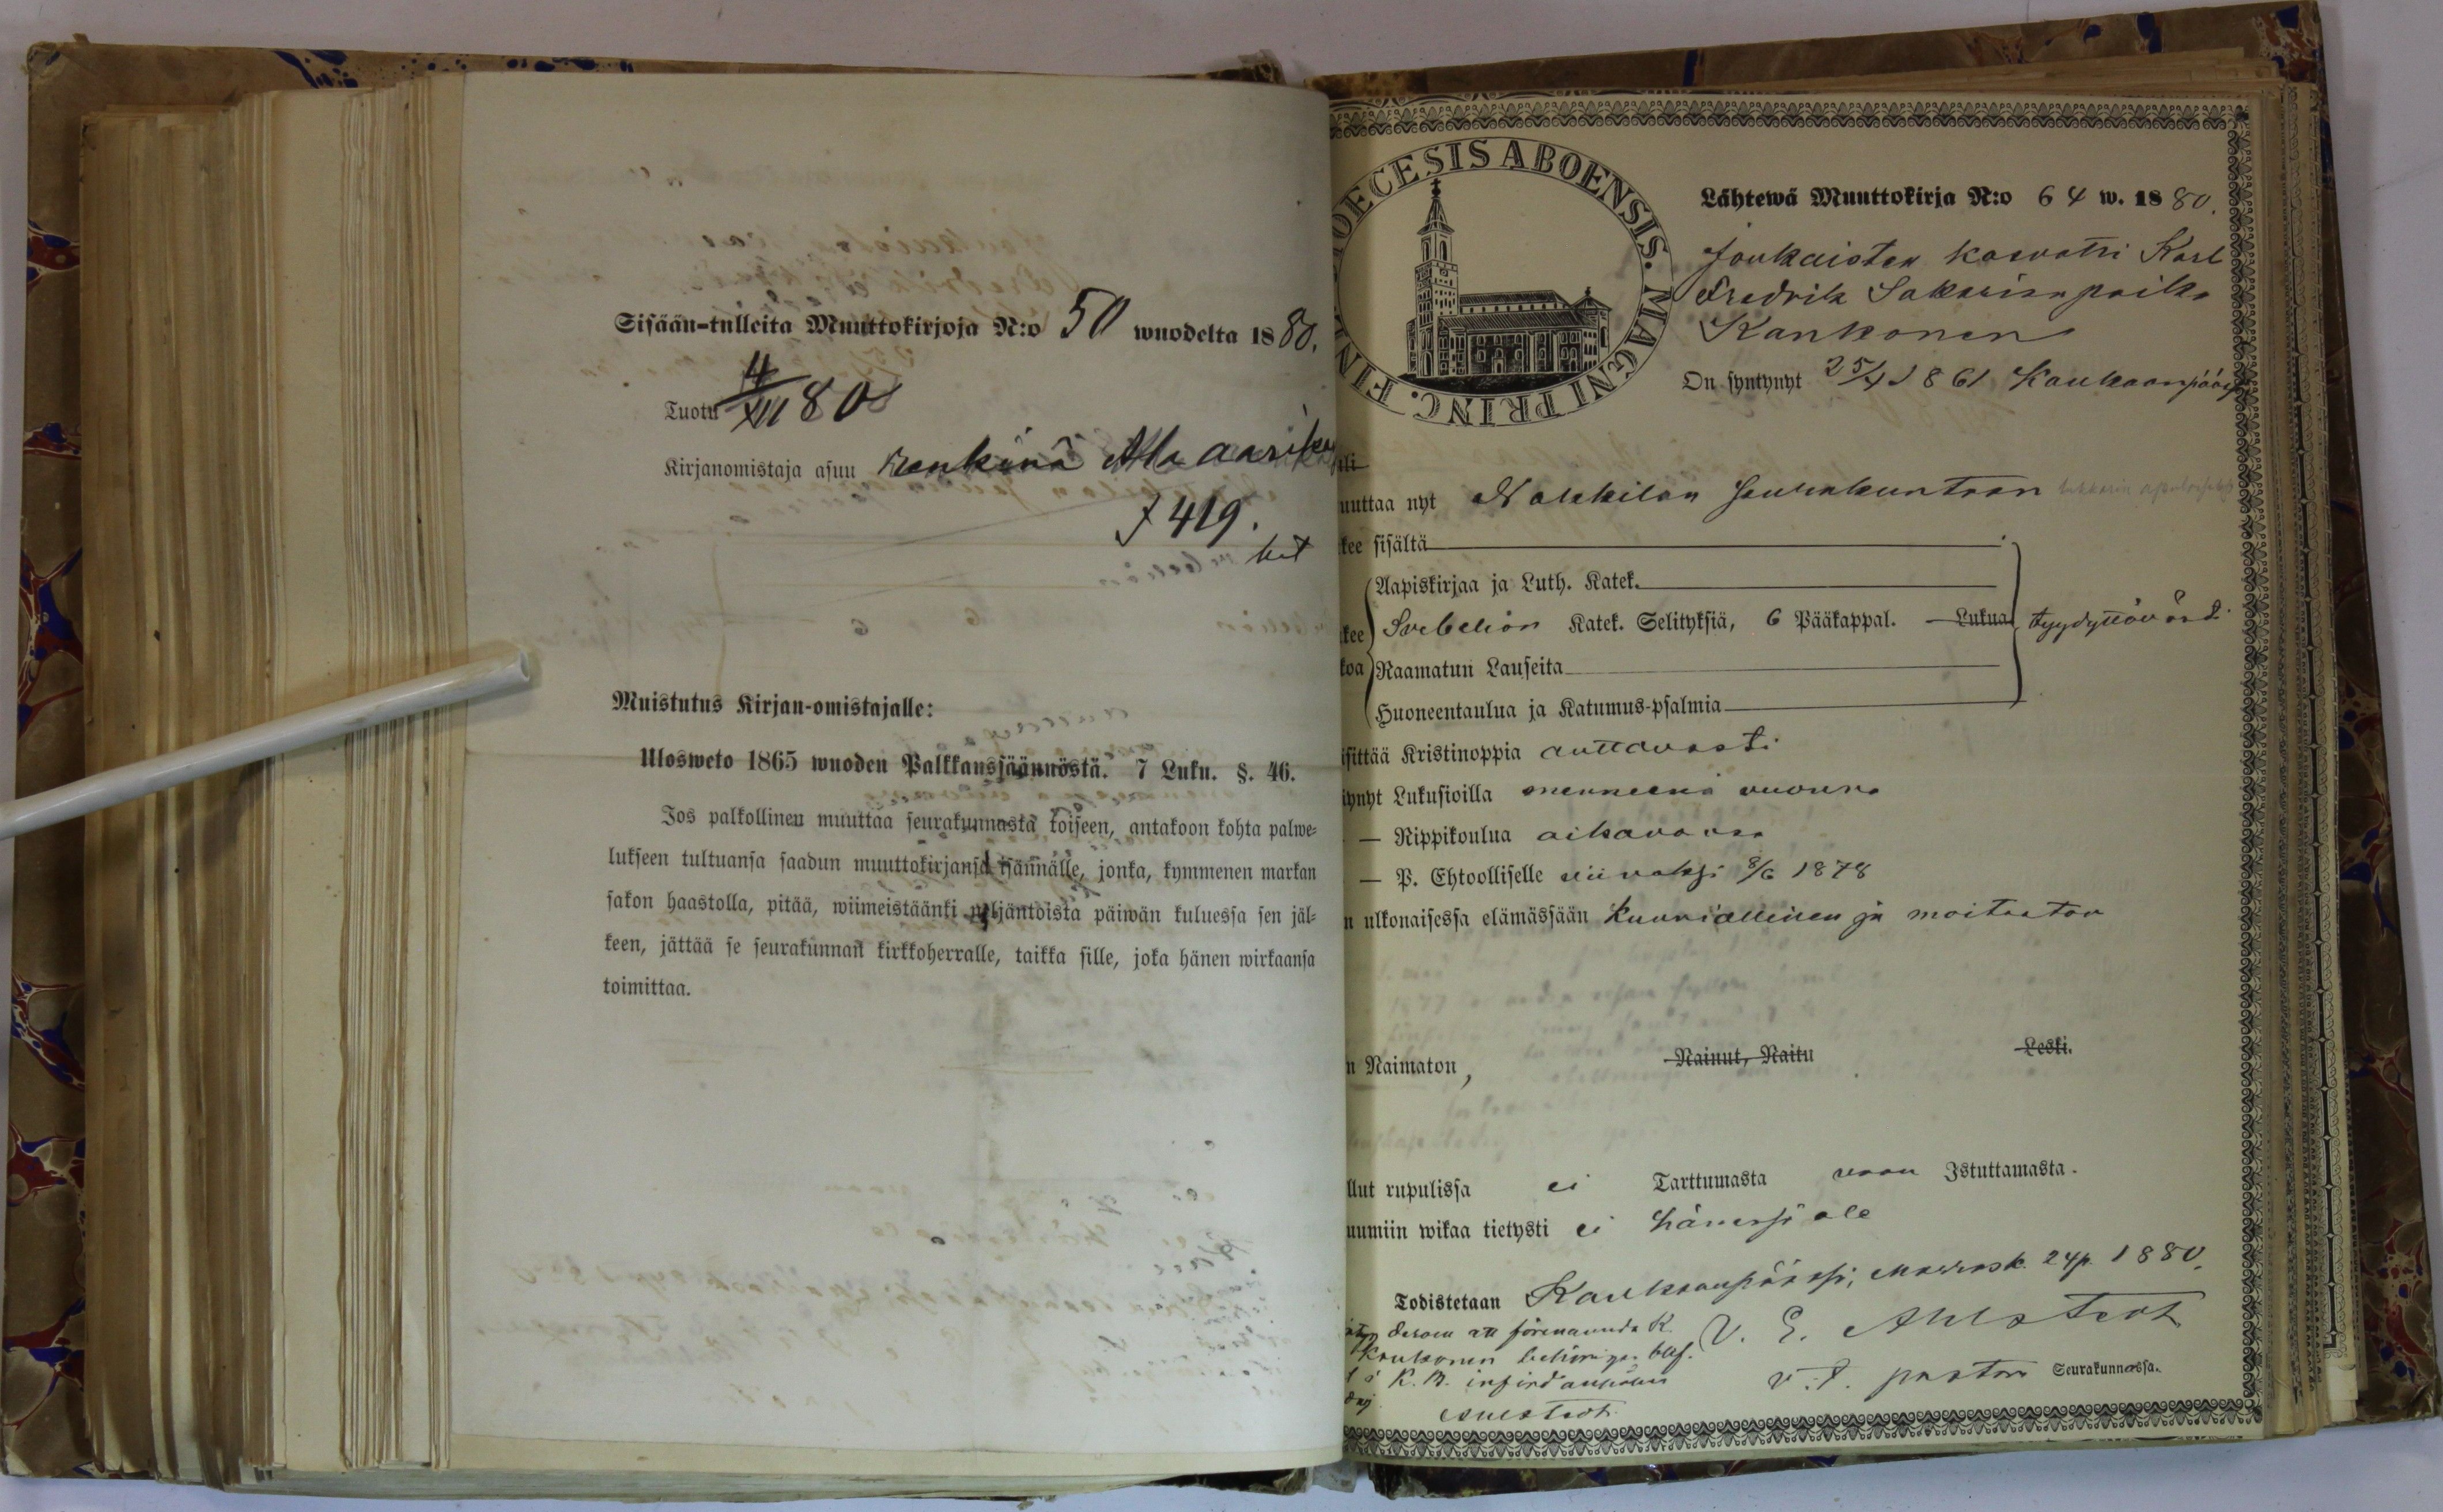 Sisään-tulleita Muuttokirjoja N:o 50 wuodelta 1880.
Tuotu 4/XII 80
Kirjanomistaja asuu renkinä
f 419.
Muistutus Kirjan-omistajalle:
Ulosweto 1865 wuoden Palkkaussäännöstä. 7 Luku. §. 46.
Jos palkollinen muuttaa seurakunnasta toiseen, antakoon kohta palwe=
lukseen tultuansa saadun muuttokirjansa isännälle, jonka, kymmenen markan
sakon haastolla, pitää, wiimeistäänki neljäntoista päiwän kuluessa sen jäl=
keen, jättää se seurakunnan kirkkoherralle, taikka sille, joka hänen wirkaansa
toimittaa.
OECESIS ABOENSIS. MAGNI PRINC. FIN
Lähtewä Muuttokirja N:o 64 w. 1880.
Joukaisten kasvatti Karl
Fredrik Sakarisn poika
Kankonen
On syntynyt 25/4 1861 Kankaanpääs
uuttaa nyt Nakkilan seurakuntaan
kee sisältä
Aapiskirjaa ja Luth. Katek.
kee Svebelion Katek. Selityksiä, 6 Pääkappal. Lukua tyydyttävästi
koa Raamatun Lauseita
Huoneentaulua ja Katumus-psalmia
isittää Kristinoppia auttavasti
ynyt Lukusioilla menneenä vuonna
— Rippikoulua aikanansa
— P. Ehtoolliselle viimeksi 8/6 1878
n ulkonaisessa elämässään kunniallinen ja moitteeton
n Naimaton, Nainut, Naitu Leski.
llut rupulissa ei Tarttumasta vaan Istuttamasta.
uumiin wikaa tietysti ei hänessä ole
Todistetaan Kankaanpäässä, Marrask. 24 p. 1880.
dersom att förenämnda K.
Kankonen
V. E. Ahlstedt
v. t. pastori Seurakunnassa.
Ahlstedt.